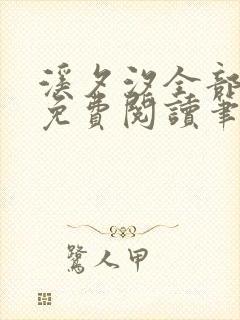 溪夕汐全部
免費閱讀筆
鷺人甲